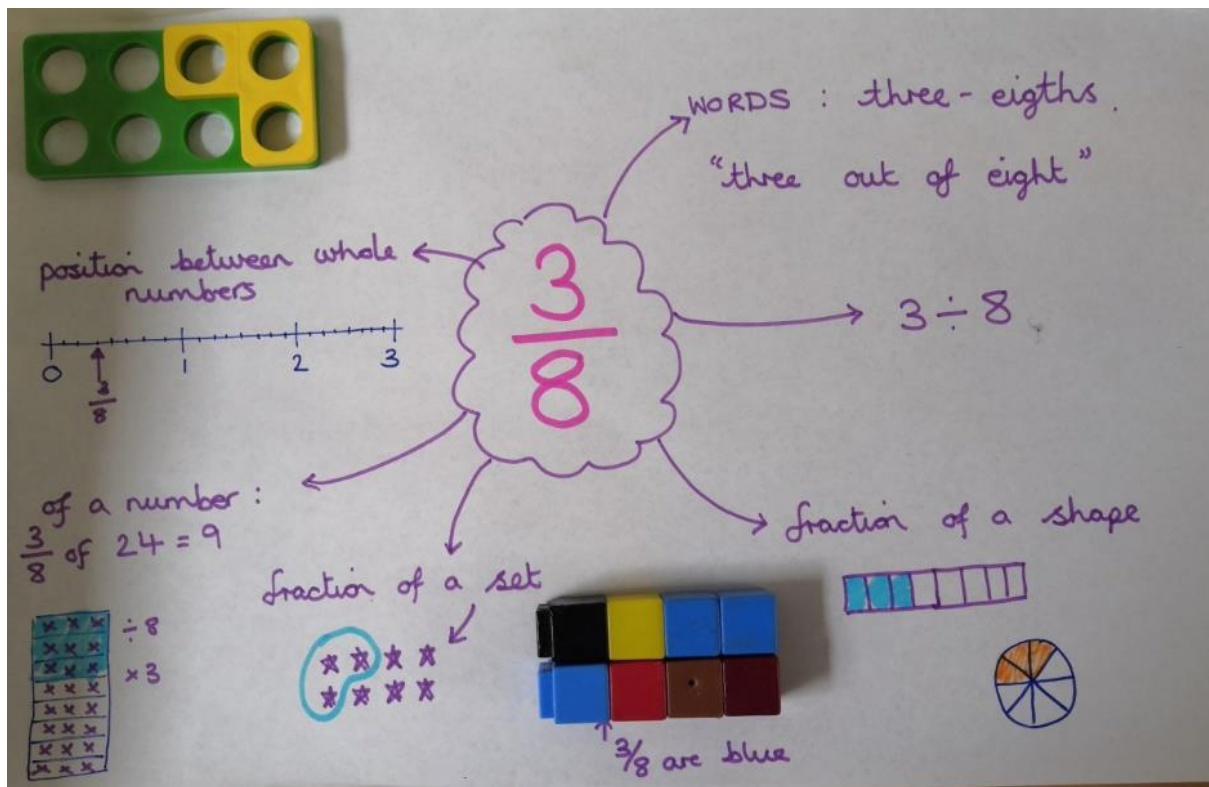 WORDS : three-eigths.
"three out of eight"
position between whole
numbers
0 1 2 3
3/8
3/8
3 ÷ 8
of a number :
3/8 of 24 = 9
÷ 8
× 3
fraction of a set
fraction of a shape
3/8 are blue